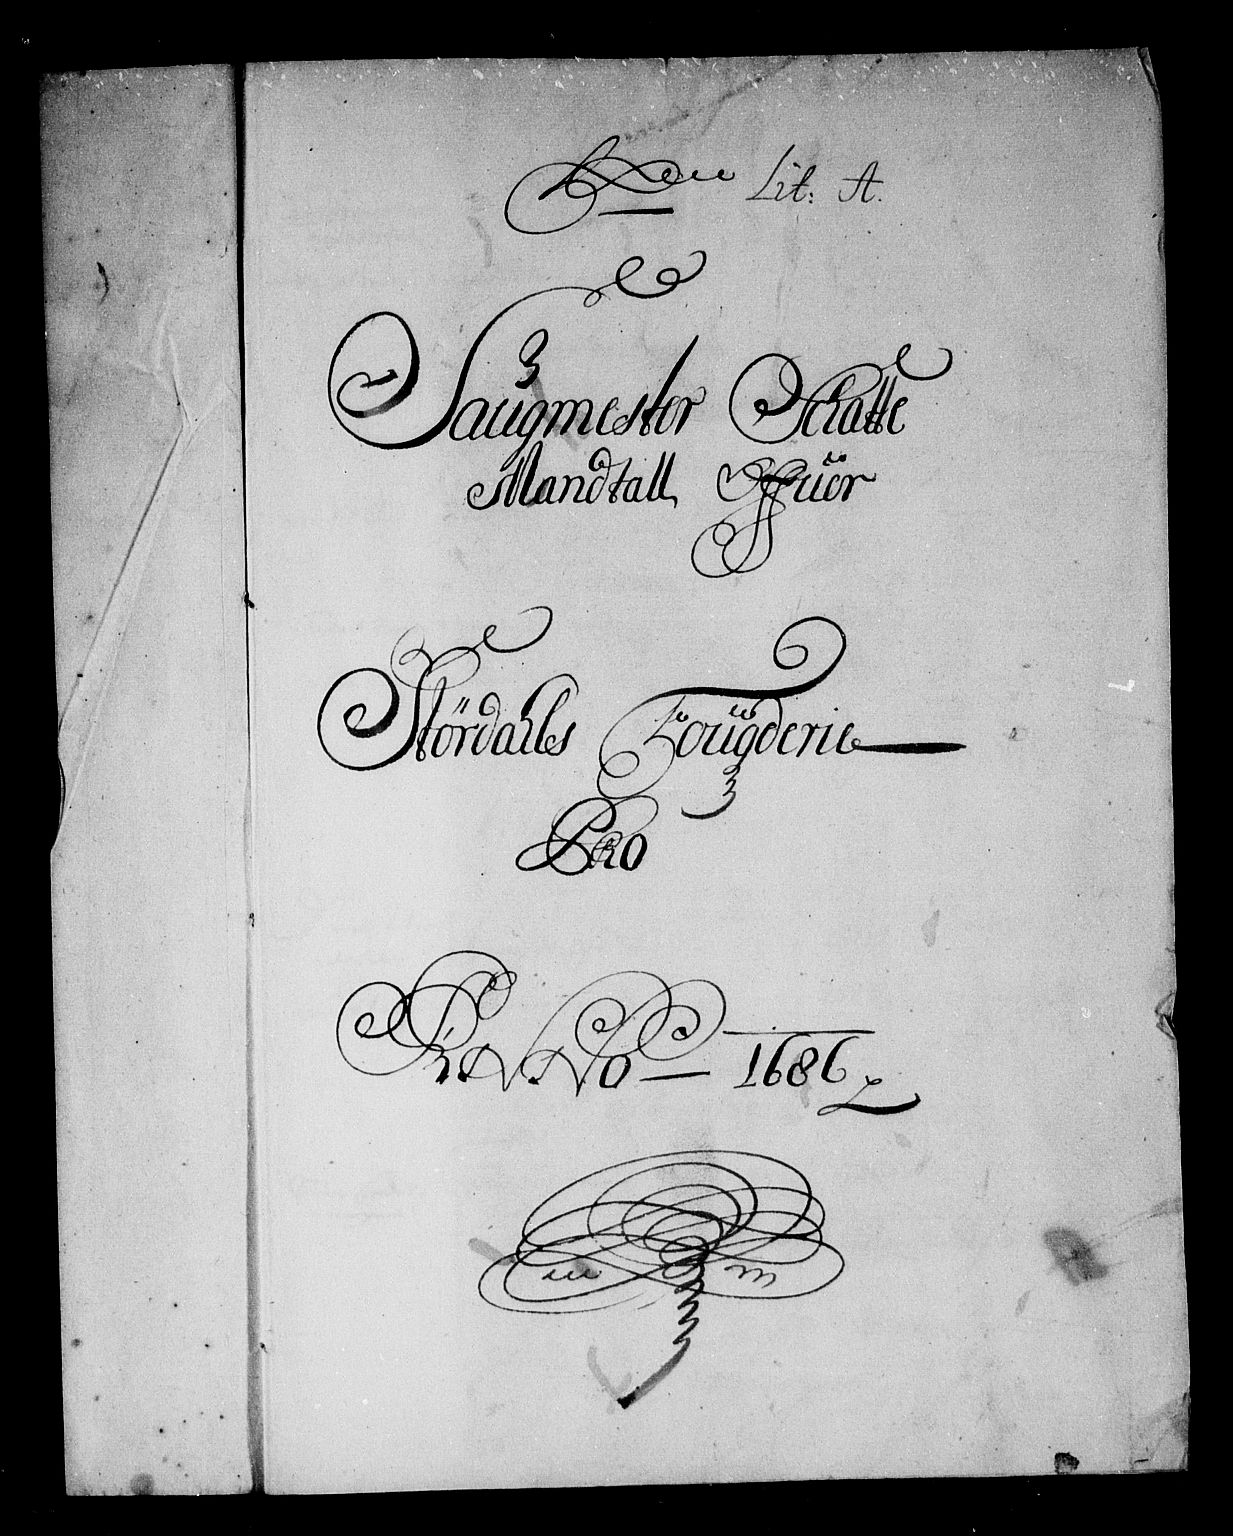 Lit: A.
Saugmester Schatte
Mandtall Ffuor
Stördalls Fougderie
Pro
Anno 1686